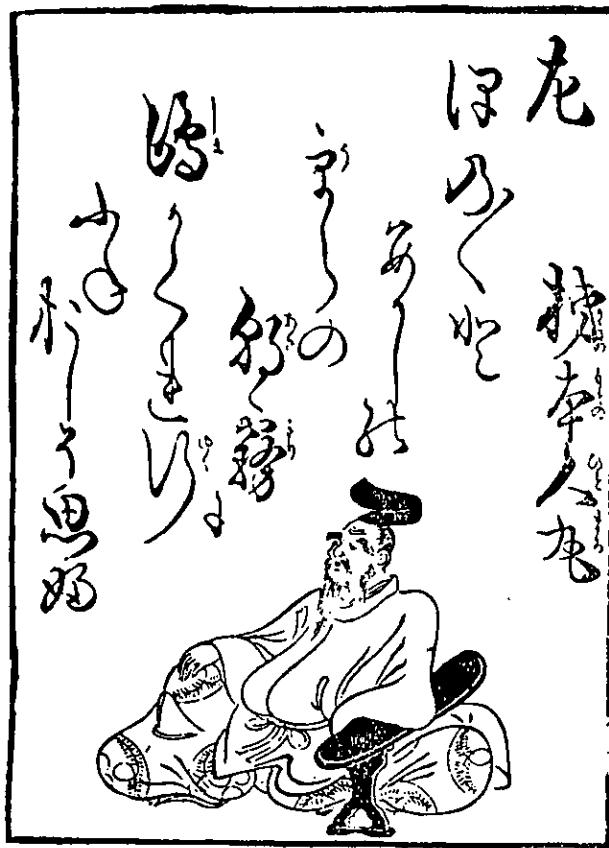 左
柿本人丸
ほの〱と
あかしの
うらの
朝霧に
嶋かくれ行
ふね
をしそ思ふ